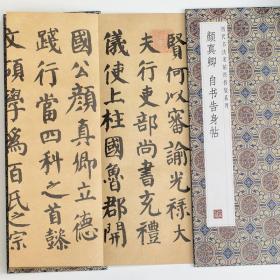 賢何以審諭光祿大
夫行吏部尚書充禮
儀使上柱國魯郡開
國公顏真卿立德
踐行當四科之首懿
文碩學為百氏之宗
顏真卿 自书告身帖